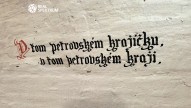 V tom petrovském krajíčku,
v tom petrovském kraji.